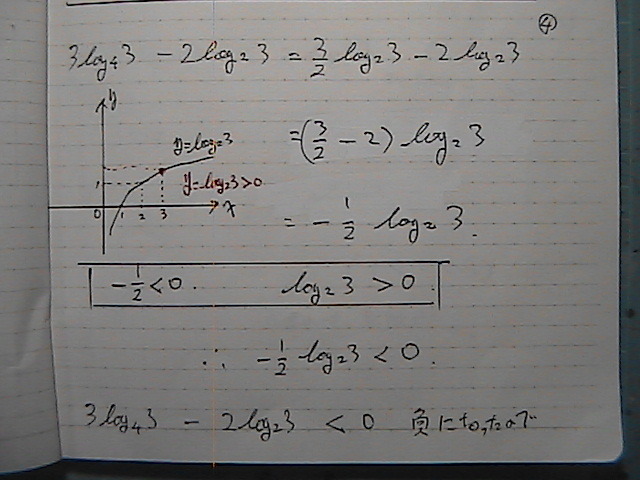 ④
3log₄3 - 2log₂3 = 3/2 log₂3 - 2log₂3
y
y=log₂3
= (3/2 - 2) log₂3
1
y=log₂3>0
0 1 2 3 x
= -1/2 log₂3.
-1/2 < 0. log₂3 > 0
∴ -1/2 log₂3 < 0.
3log₄3 - 2log₂3 < 0 負になったので